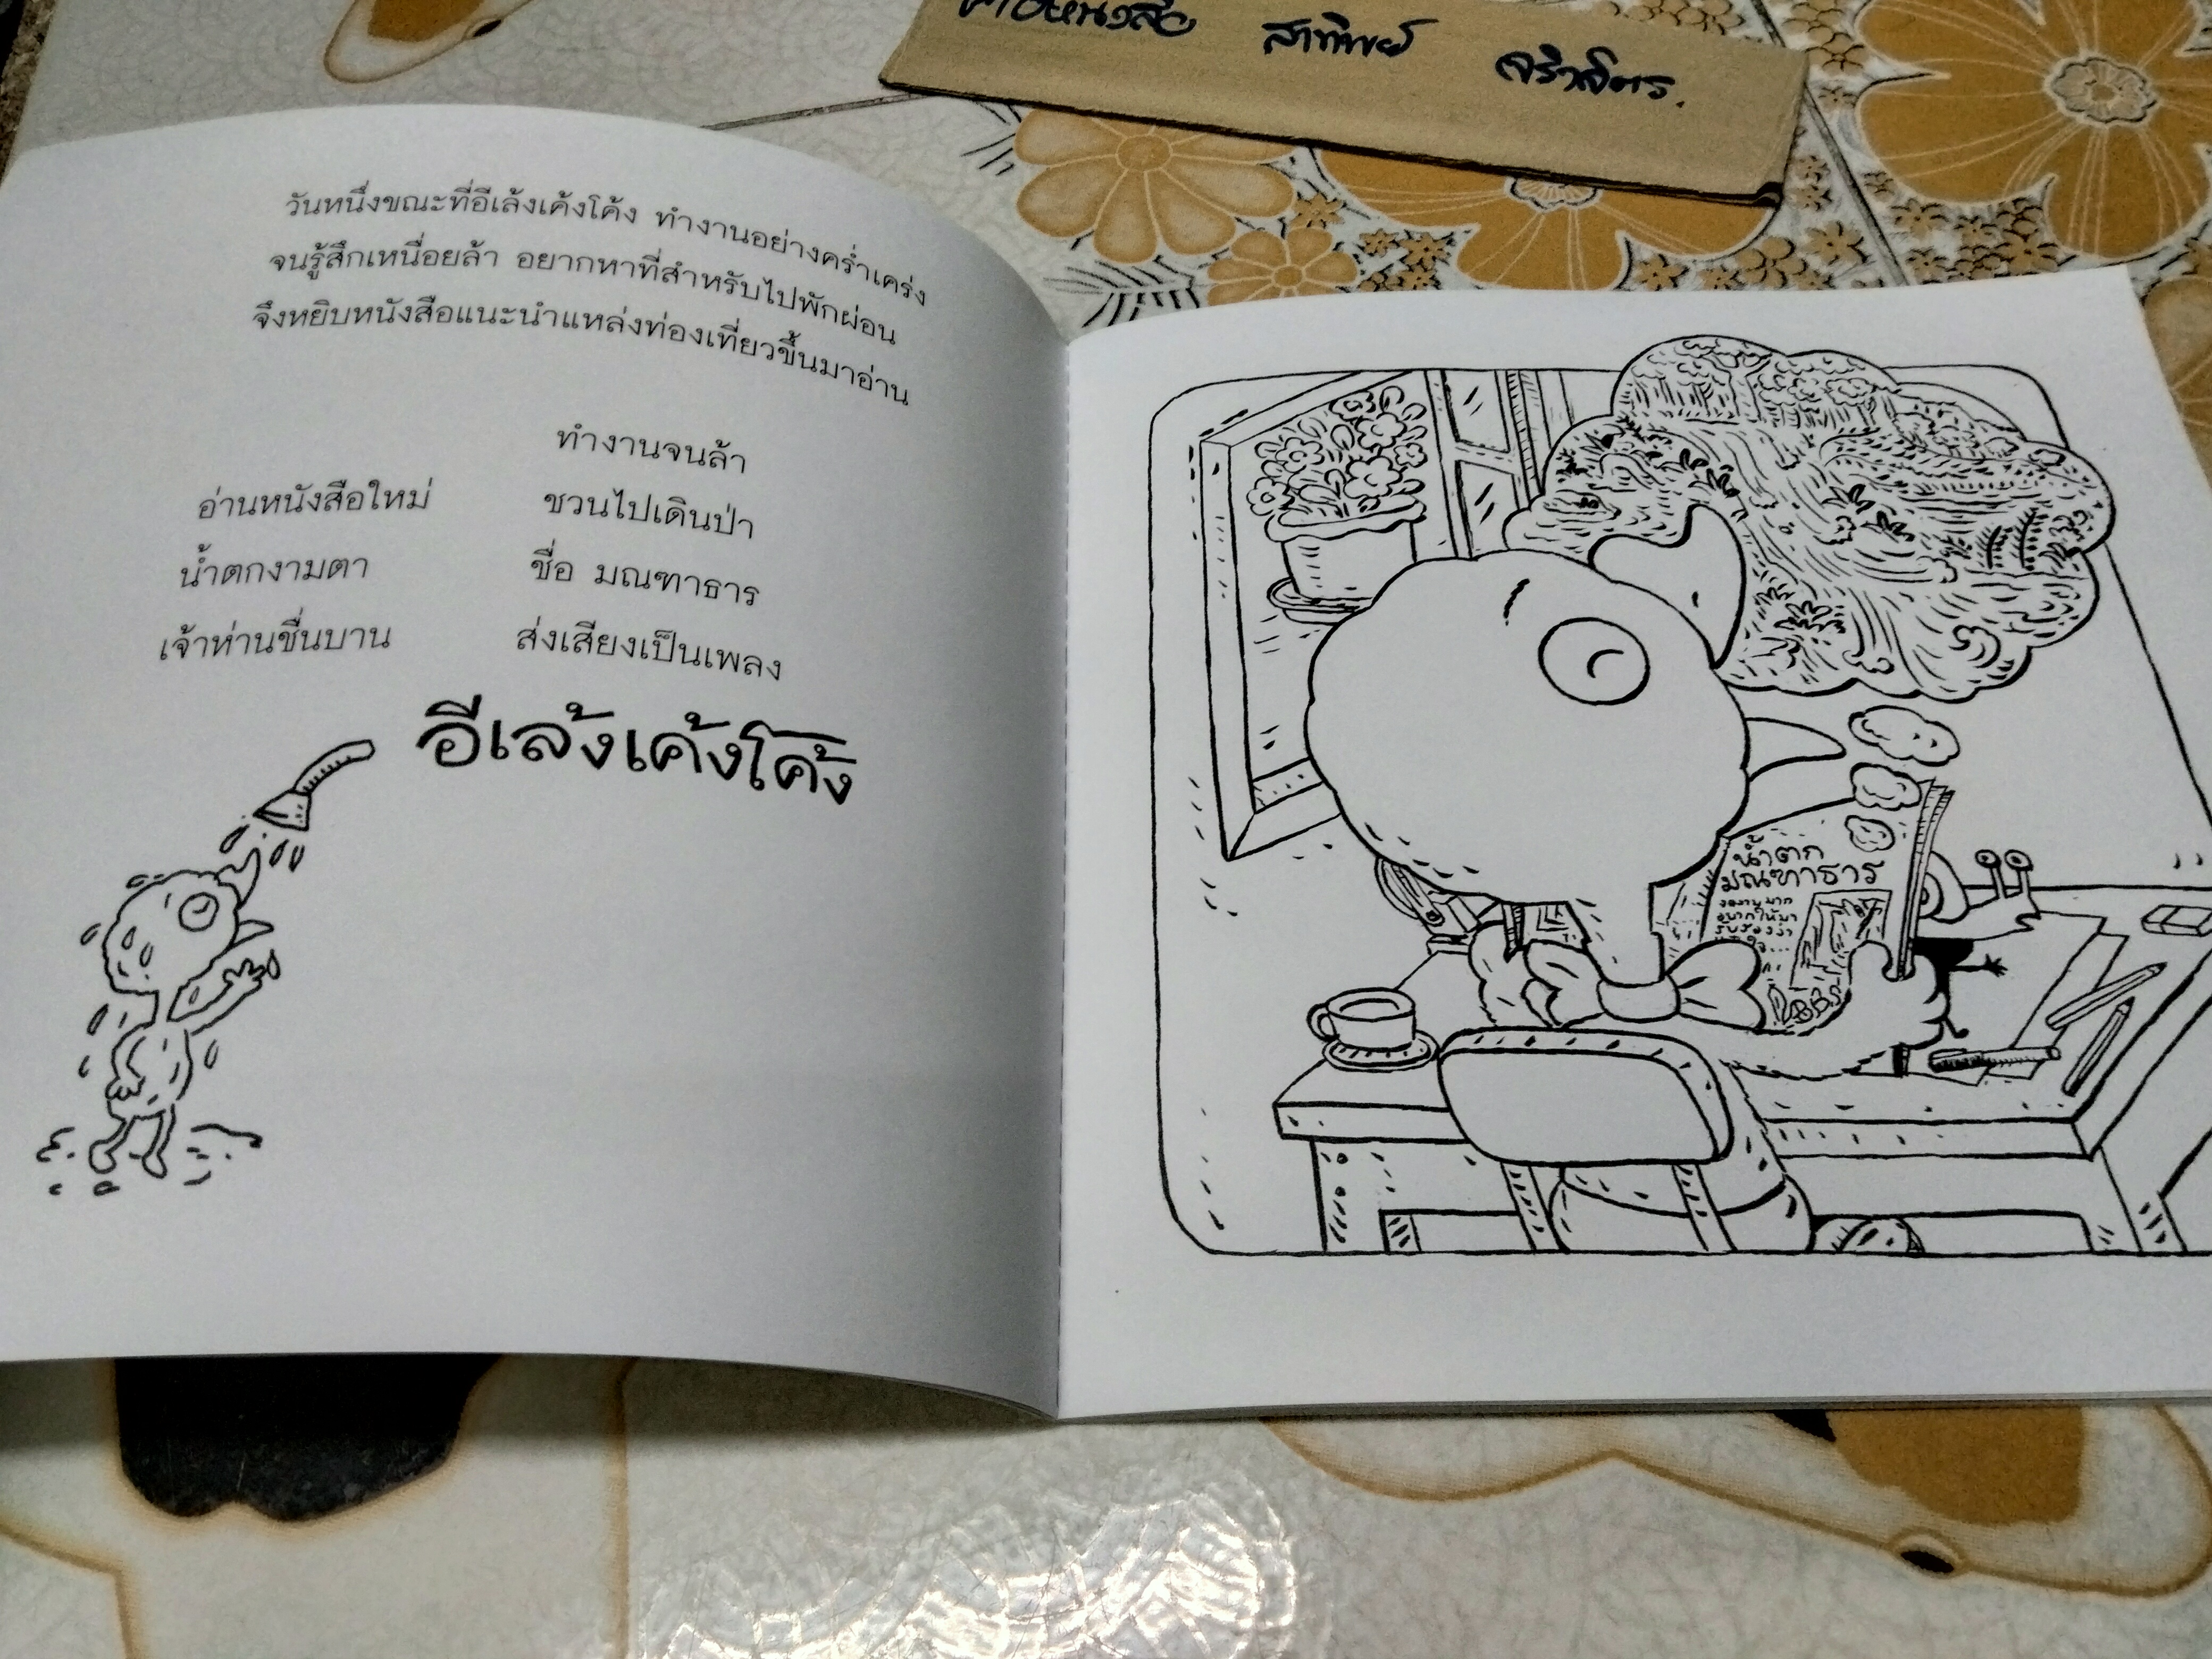 สาทิพย์
วันหนึ่งขณะที่อีเล้งเค้งโค้ง ทำงานอย่างคร่ำเคร่ง
จนรู้สึกเหนื่อยล้า อยากหาที่สำหรับไปพักผ่อน
จึงหยิบหนังสือแนะนำแหล่งท่องเที่ยวขึ้นมาอ่าน
ทำงานจนล้า
อ่านหนังสือใหม่ ชวนไปเดินป่า
น้ำตกงามตา ชื่อ มณฑาธาร
เจ้าห่านชื่นบาน ส่งเสียงเป็นเพลง
อีเล้งเค้งโค้ง
น้ำตก
มณฑาธาร